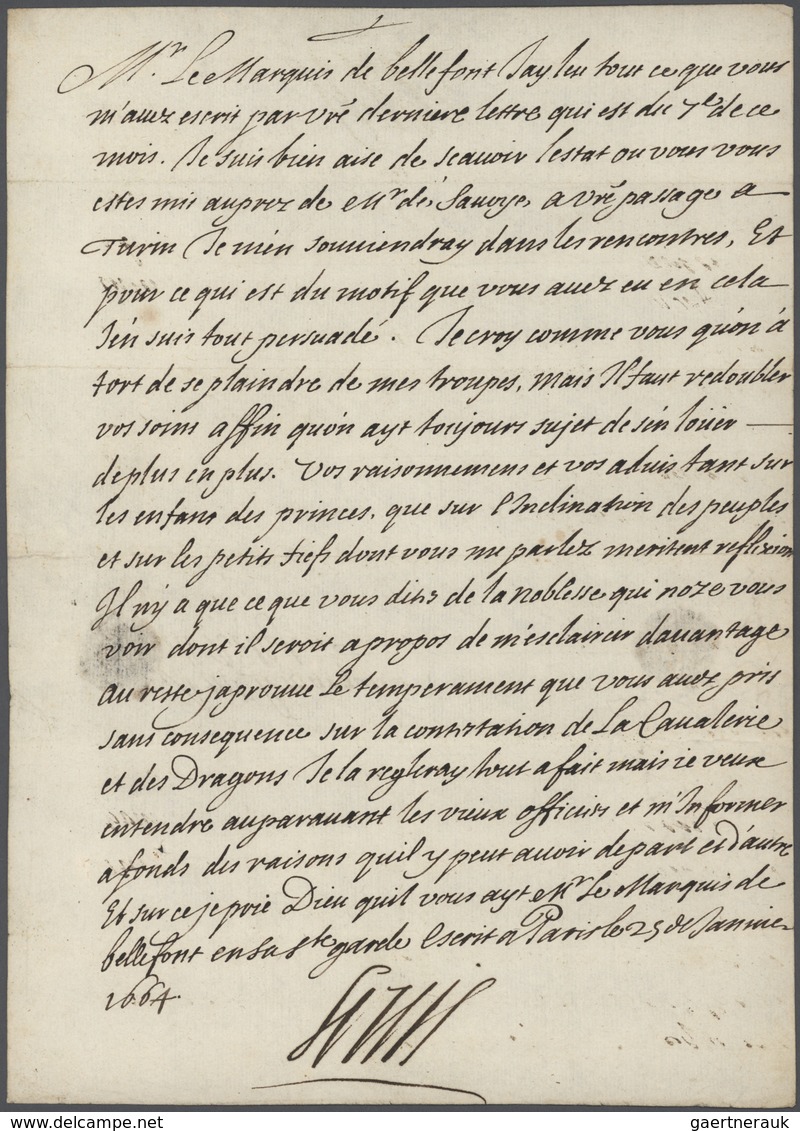 Mr. Le Marquis de bellefont Jay leu tout ce que vous
m'auez escrit par vrē derniere lettre qui est du 7e de ce
mois. Je suis bien aise de scauoir l'estat ou vous vous
estes mis auprez de Mr de Sauoye a vrē passage a
Turin Je m'en souuiendray dans les rencontres, Et
pour ce qui est du motif que vous auez eu en cela
J'en suis tout persuadé. Je croy comme vous qu'on a
tort de se plaindre de mes troupes, mais Il faut redoubler
vos soins affin qu'on ayt toujours sujet de s'en loüer
de plus en plus. Vos raisonnemens et vos aduis tant sur
les enfans des princes. que sur l'Inclination des peuples
et sur les petits fiefs dont vous me parlez meritent reflexion
Il n'y a que ce que vous dites de la noblesse qui n'oze vous
voir dont il seroit apropos de m'esclaircir dauantage
au reste j'aprouue Le temperament que vous auez pris
sans consequence sur la contestation de La Caualerie
et des Dragons Je la regleray tout a fait mais ie veux
entendre auparauant les vieux officiers et m'Informer
a fonds des raisons qu'il y peut auoir de part et d'autre
Et sur ce je prie Dieu qu'il vous ayt Mr Le Marquis de
bellefont en sa ste garde Escrit a Paris le 25 de Januier
1664.
Louis
gaertnerauk